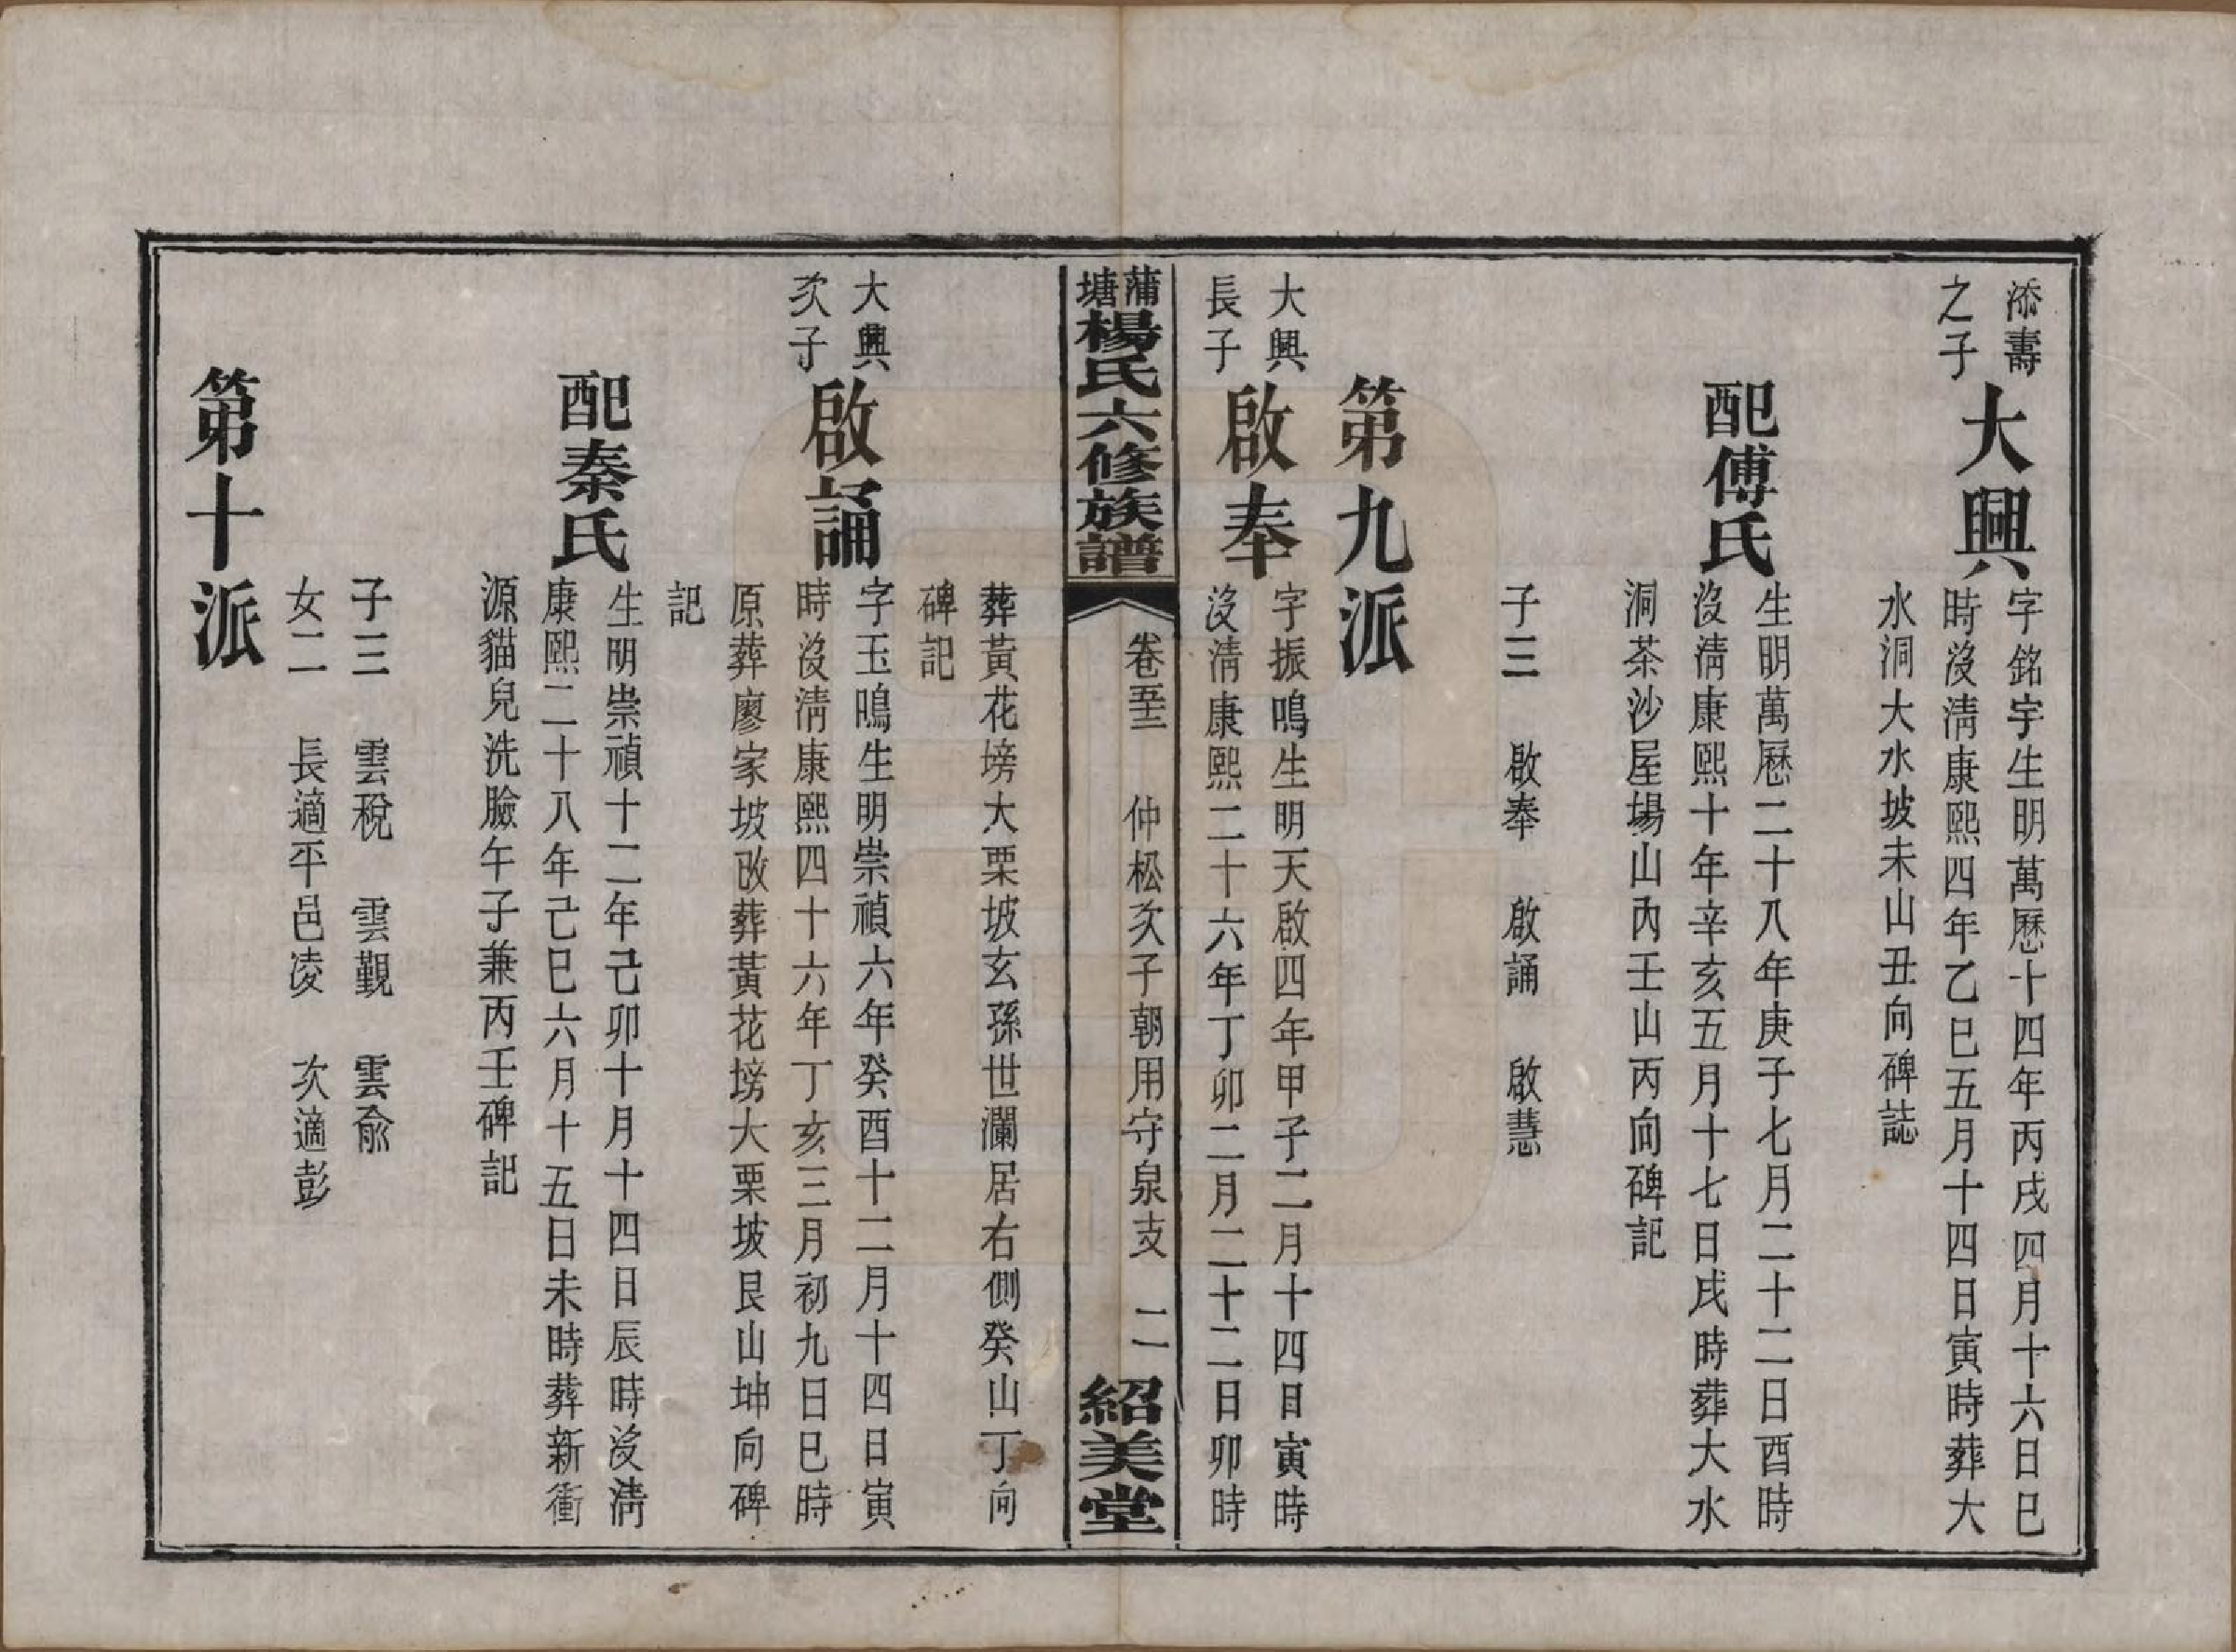 添壽
之子
大興
字銘宇生明萬曆十四年丙戌四月十六日巳
時沒淸康熙四年乙巳五月十四日寅時葬大
水洞大水坡未山丑向碑誌
配傅氏
生明萬曆二十八年庚子七月二十二日酉時
沒淸康熙十年辛亥五月十七日戌時葬大水
洞茶沙屋場山內壬山丙向碑記
子三　啟奉　啟誦　啟慧
第九派
大興
長子
啟奉
字振鳴生明天啟四年甲子二月十四日寅時
沒淸康熙二十六年丁卯二月二十二日卯時
蒲塘楊氏六修族譜
卷五十三　仲松次子朝用守泉支　二
紹美堂
葬黃花塝大栗坡玄孫世瀾居右側癸山丁向
碑記
大興
次子
啟誦
字玉鳴生明崇禎六年癸酉十二月十四日寅
時沒淸康熙四十六年丁亥三月初九日巳時
原葬廖家坡改葬黃花塝大栗坡艮山坤向碑
記
配秦氏
生明崇禎十二年己卯十月十四日辰時沒淸
康熙二十八年己巳六月十五日未時葬新衝
源貓兒洗臉午子兼丙壬碑記
子三　雲稅　雲觀　雲兪
女二　長適平邑凌　次適彭
第十派